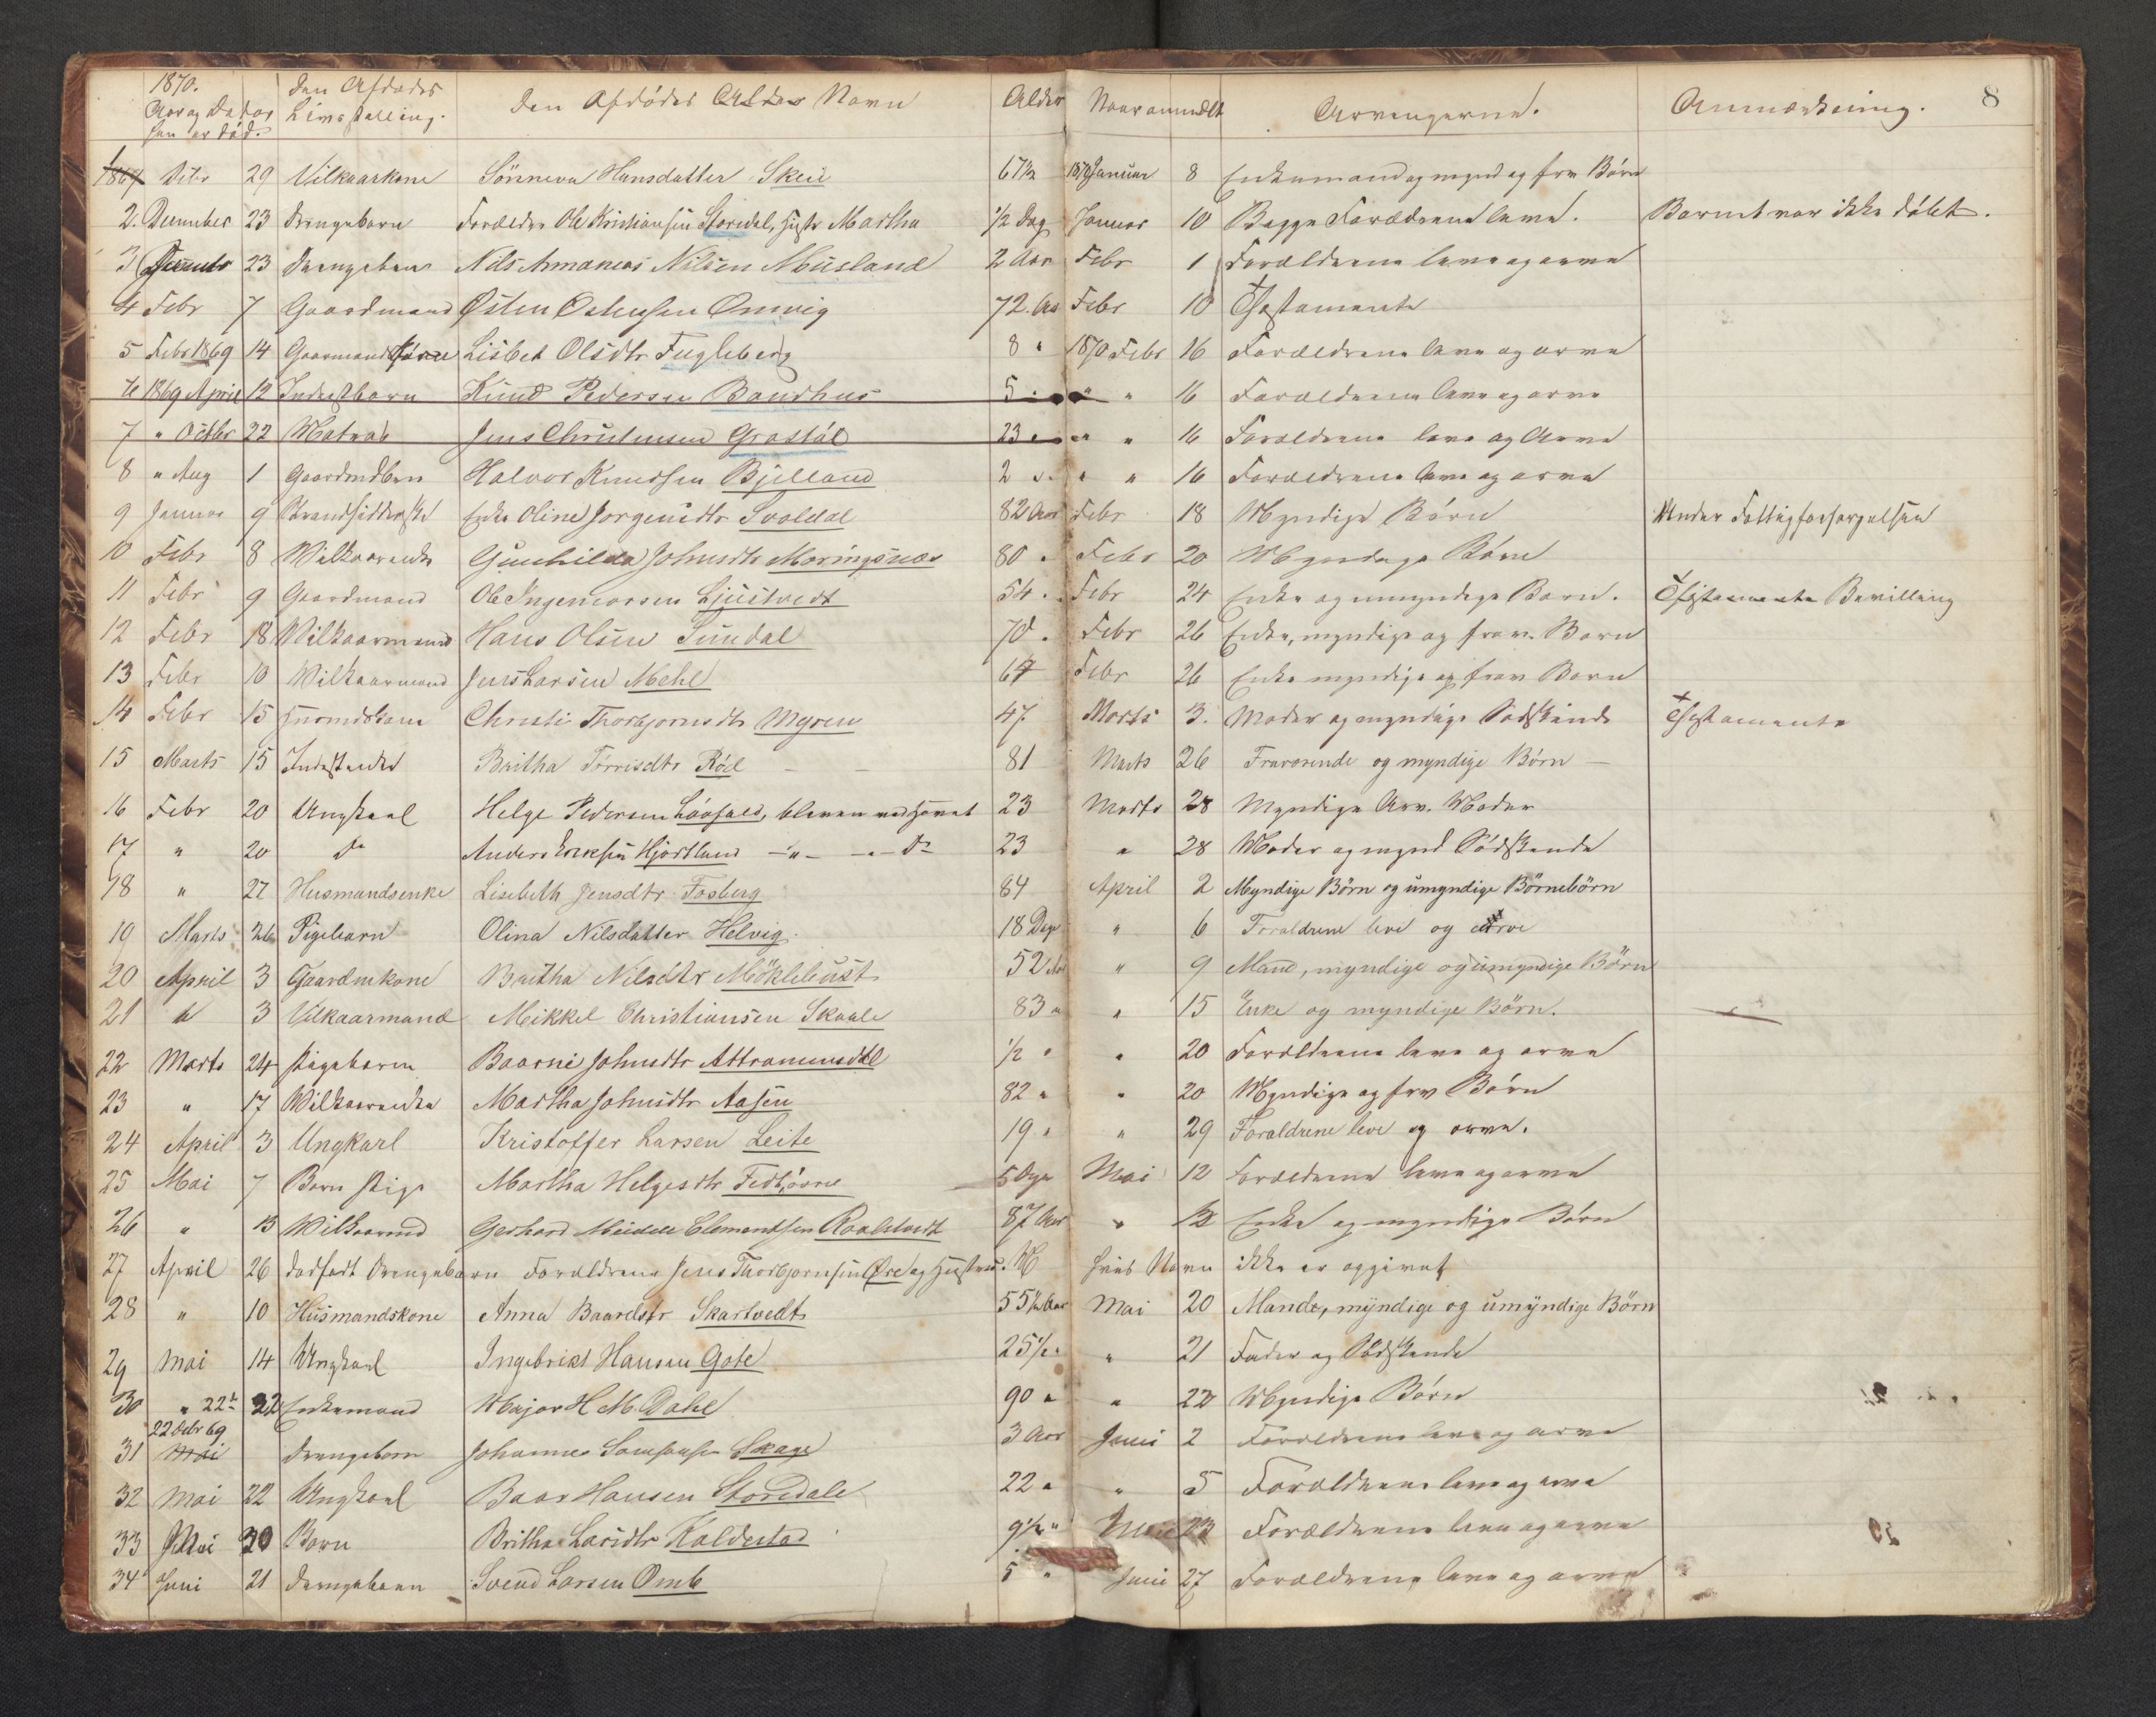 8
1870. Aar og Datas han er død. Den Afdødes Livsstilling. Den Afdødes Navn Alder Naar anmeldt Arvingerne. Anmærkning.
1 1869 Debr 29 Vilkaarkone Sönneva Hansdatter Skeie 67½ 1870 Januar 8 Enkemand og mynd og frv Börn
2. December 23 Drengebarn Forældre Ole Kristiansen Storedal, Hustr Martha ½ Dag Januar 10 Begge Forældrene leve. Barnet var ikke döbt.
3 23 Drengebarn Nils Amanias Nilsen Musland 2 Aar Febr 1 Forældrene leve og arve
4 Febr 7 Gaardmand Østen Ostensen Omvig 72 Aar Febr 10 Testamente
5 Febr 1869 14 Gaarmands Lisbet Olsdtr Fugleberg 8 " 1870 Febr 16 Forældrene leve og arve
6 1869 April 12 Inderstbarn Knud Pedersen Bondhus 5 " " " 16 Forældrene leve og arve
7 " Octbr 22 Matros Jens Christensen 23 " " " 16 Forældrene leve og Arve
8 " Aug 1 Gaardmdbarn Halvor Knudsen Bjelland 2 " " " 16 Forældrene leve og arve
9 Januar 9 Strandsidderske Enke Oline Jorgensdtr Svoldal 82 Aar Febr 18 Myndige Börn Under Fattigforsörgelsen
10 Febr 8 Vilkaarenke Gunhilda Johnsdtr Moringsnæs 80 " Febr 20 Myndige Börn
11 Febr 9 Gaardmand Ole Ingemorsen Ljustvedt 54 " Febr 24 Enke og umyndige Barn. Testamente Bevilling
12 Febr 18 Vilkaarmand Hans Olsen Sundal 70 " Febr 26 Enke, myndige og frav. Barn
13 Febr 10 Vilkaarmand Jens Larsen Mehl 67 Febr 26 Enke myndige og frav Barn
14 Febr 15 Husmdskone Christi Thorbjornsdtr Myren 47 Marts 3. Moder og myndige Sødskende Testamente
15 Marts 15 Inderstenke Britha Törrisdtr Röd — — 81 Marts 26 Fraværende og myndige Börn —
16 Febr 20 Ungkarl Helge Pedersen Löofald, bleven ved Havet 23 Marts 28 Myndige Arv. Moder
17 " 20 do Anders Eriksen Hjortland —"— —"— do 23 " 28 Moder og mynd Södskende
18 " 27 Husmandsenke Lisebeth Jensdtr Fosberg 84 April 2 Myndige Börn og umyndige Börnebörn
19 Marts 26 Pigebarn Olina Nilsdatter Helvig. 18 Dage " 6 Forældrene leve og arve
20 April 3 Gaardmkone Britha Nilsdtr Möklebust 52 Aar " 9 Mand, myndige og umyndige Börn
21 " 3 Vilkaarmand Mikkel Christiansen Skaale 83 " " 15 Enke og myndige Börn.
22 Marts 24 Pigebarn Baarni Johnsdtr Attramensdal ½ " " 20 Forældrene leve og arve
23 " 17 Vilkaarenke Martha Johnsdtr Aasen 82 " " 20 Myndige og frv Börn
24 April 3 Ungkarl Kristoffer Larsen Leite 19 " " 29 Forældrene leve og arve.
25 Mai 7 Barn Pige Martha Helgesdtr 5 Dage Mai 12 Forældrene leve og arve
26 " 13 Vilkaarmd Gerhard Meidell Clementsen 87 Aar " 12 Enke og myndige Börn
27 April 26 dödfödt Drengebarn Forældrene Jens Thorbjornsen Øre og Hustru. M hvis Navn ikke er opgivet
28 " 10 Husmandskone Anna Baardsdtr Skartvedt 55½ Aar Mai 20 Mand, myndige og umyndige Börn
29 Mai 14 Ungkarl Ingebrikt Hansen Gote 25½ " " 21 Fader og Södskende
30 " 22 22 Enkemand Major H M. Dahl 90 " " 22 Myndige Börn
31 22 Debr 69 Mai Drengebarn Johannes Samsonsen Skage 3 Aar Juni 2 Forældrene leve og arve
32 Mai 22 Ungkarl Baar Hansen Storedale 22 " " 5 Forældrene leve og arve
33 Mai 30 Barn Britha Larsdtr Kaldestad 9½ " 23 Forældrene leve og arve
34 Juni 21 Drengebarn Svend Larsen Omb 5 " Juni 27 Forældrene leve og arve